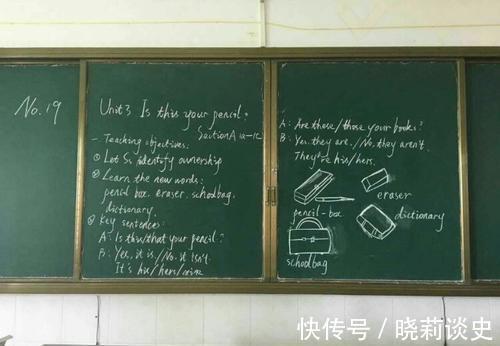 No. 19
Unit 3 Is this your pencil?
Section A 1a-1c
- Teaching objectives:
① Let Ss identify ownership
② Learn the new words:
pencil box, eraser, schoolbag,
dictionary
③ Key sentences:
A: Is this/that your pencil?
B: Yes, it is. // No, it isn't.
It's his/hers/mine
A: Are these/those your books?
B: Yes, they are. // No, they aren't.
They're his/hers.
eraser
pencil-box
dictionary
schoolbag
快传号 / 晓莉谈史